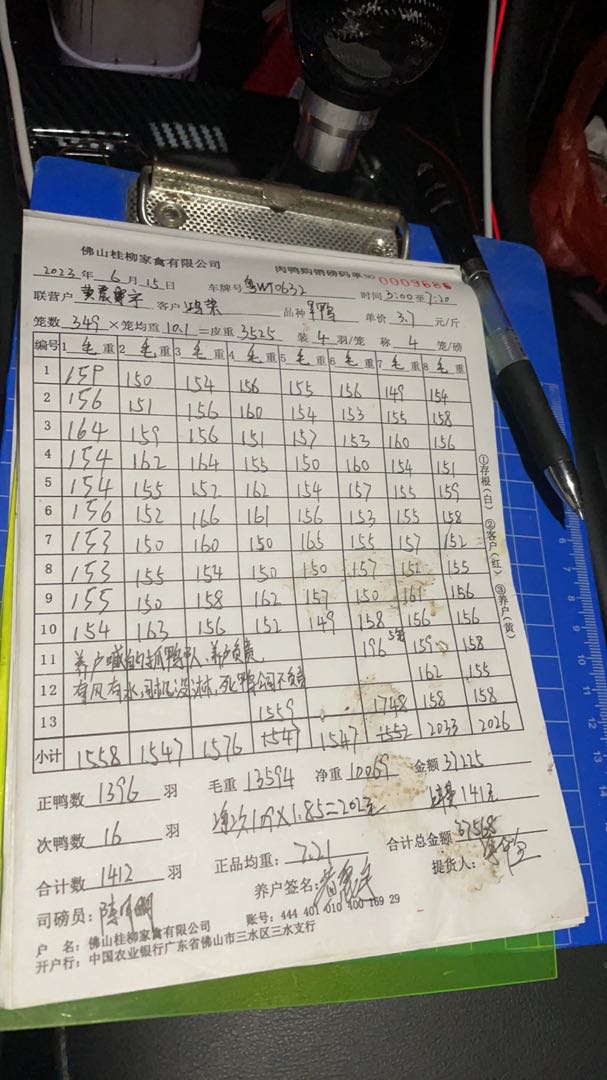 佛山桂柳家禽有限公司 肉鸭购销磅码单 No 000968
2023年 6月 15日 车牌号 粤WT0632 时间 3:00 至 7:20
联营户 黄 客户 鸿荣 品种 单价 3.7 元/斤
笼数 349 ×笼均重 10.1 =皮重 3525 装 4 羽/笼 称 4 笼/磅
编号 1 毛重 2 毛重 3 毛重 4 毛重 5 毛重 6 毛重 7 毛重 8 毛重
1 159 150 154 156 155 156 149 154
2 156 151 156 160 154 153 155 158
3 164 159 156 151 157 153 160 156
4 154 162 164 155 150 160 154 151
5 154 155 152 162 154 157 155 159
6 156 152 166 161 156 153 155 158
7 153 150 160 150 165 155 157 152
8 153 155 154 150 150 157 152 155
9 155 150 158 162 157 150 161 156
10 154 163 156 152 149 158 156 156
11 养户喊的抓鸭队,养户负责 196 159 158
12 有风有水,司机没淋,死鸭公司不负责 162 155
13 1559 1748 158 158
小计 1558 1547 1576 1547 1547 1552 2033 2026
正鸭数 1396 羽 毛重 13594 净重 10069 金额 37225
次鸭数 16 羽 109×1.85=202元 141元
合计数 1412 羽 正品均重: 7.21 合计总金额 37568
司磅员: 养户签名: 提货人:
户 名: 佛山桂柳家禽有限公司 账号: 444 401 010 400 169 29
开户行: 中国农业银行广东省佛山市三水区三水支行
①存根(白) ②客户(红) ③养户(黄)